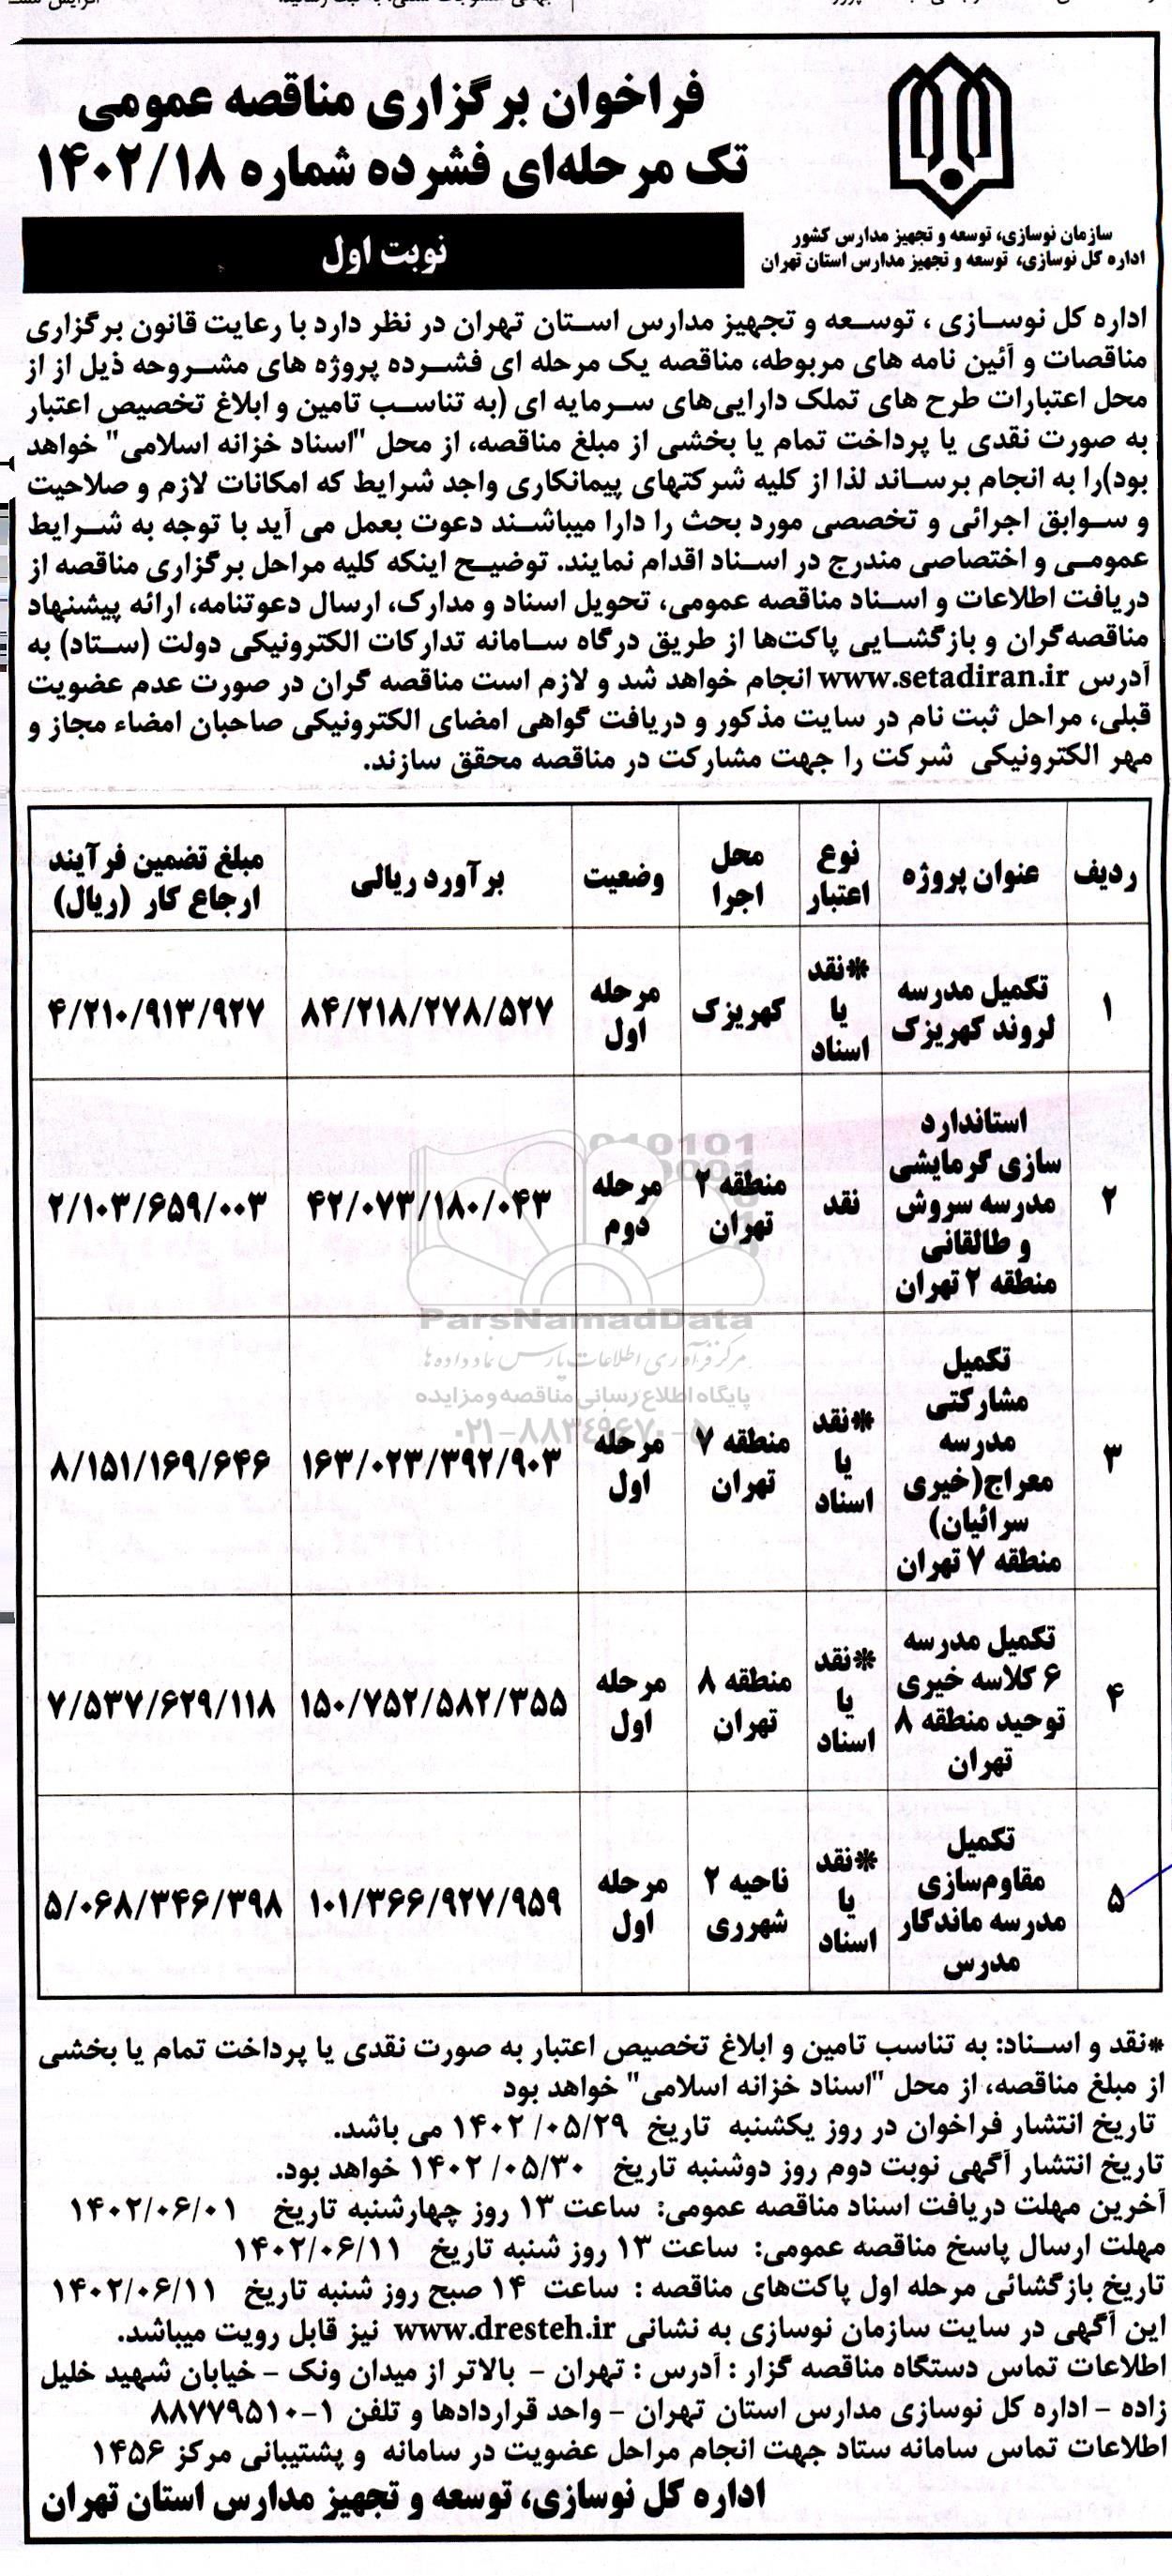 فراخوان برگزاری مناقصه عمومی
تک مرحله‌ای فشرده شماره ۱۴۰۲/۱۸
نوبت اول
سازمان نوسازی، توسعه و تجهیز مدارس کشور
اداره کل نوسازی، توسعه و تجهیز مدارس استان تهران
اداره کل نوسازی ، توسعه و تجهیز مدارس استان تهران در نظر دارد با رعایت قانون برگزاری
مناقصات و آئین نامه های مربوطه، مناقصه یک مرحله ای فشرده پروژه های مشروحه ذیل از از
محل اعتبارات طرح های تملک دارایی‌های سرمایه ای (به تناسب تامین و ابلاغ تخصیص اعتبار
به صورت نقدی یا پرداخت تمام یا بخشی از مبلغ مناقصه، از محل "اسناد خزانه اسلامی" خواهد
بود)را به انجام برساند لذا از کلیه شرکتهای پیمانکاری واجد شرایط که امکانات لازم و صلاحیت
و سوابق اجرائی و تخصصی مورد بحث را دارا میباشند دعوت بعمل می آید با توجه به شرایط
عمومی و اختصاصی مندرج در اسناد اقدام نمایند. توضیح اینکه کلیه مراحل برگزاری مناقصه از
دریافت اطلاعات و اسناد مناقصه عمومی، تحویل اسناد و مدارک، ارسال دعوتنامه، ارائه پیشنهاد
مناقصه‌گران و بازگشایی پاکت‌ها از طریق درگاه سامانه تدارکات الکترونیکی دولت (ستاد) به
آدرس www.setadiran.ir انجام خواهد شد و لازم است مناقصه گران در صورت عدم عضویت
قبلی، مراحل ثبت نام در سایت مذکور و دریافت گواهی امضای الکترونیکی صاحبان امضاء مجاز و
مهر الکترونیکی شرکت را جهت مشارکت در مناقصه محقق سازند.
ردیف عنوان پروژه نوع اعتبار محل اجرا وضعیت برآورد ریالی مبلغ تضمین فرآیند ارجاع کار (ریال)
۱ تکمیل مدرسه لروند کهریزک *نقد یا اسناد کهریزک مرحله اول ۸۴/۲۱۸/۲۷۸/۵۲۷ ۴/۲۱۰/۹۱۳/۹۲۷
۲ استاندارد سازی گرمایشی مدرسه سروش و طالقانی منطقه ۲ تهران نقد منطقه ۲ تهران مرحله دوم ۴۲/۰۷۳/۱۸۰/۰۴۳ ۲/۱۰۳/۶۵۹/۰۰۳
۳ تکمیل مشارکتی مدرسه معراج(خیری سرائیان) منطقه ۷ تهران *نقد یا اسناد منطقه ۷ تهران مرحله اول ۱۶۳/۰۲۳/۳۹۲/۹۰۳ ۸/۱۵۱/۱۶۹/۶۴۶
۴ تکمیل مدرسه ۶ کلاسه خیری توحید منطقه ۸ تهران *نقد یا اسناد منطقه ۸ تهران مرحله اول ۱۵۰/۷۵۲/۵۸۲/۳۵۵ ۷/۵۳۷/۶۲۹/۱۱۸
۵ تکمیل مقاوم‌سازی مدرسه ماندگار مدرس *نقد یا اسناد ناحیه ۲ شهرری مرحله اول ۱۰۱/۳۶۶/۹۲۷/۹۵۹ ۵/۰۶۸/۳۴۶/۳۹۸
ParsNamadData
مرکز فرآوری اطلاعات پارس نماد داده‌ها
پایگاه اطلاع رسانی مناقصه و مزایده
۰۲۱-۸۸۳۴۹۶۷۰-۵
*نقد و اسناد: به تناسب تامین و ابلاغ تخصیص اعتبار به صورت نقدی یا پرداخت تمام یا بخشی
از مبلغ مناقصه، از محل "اسناد خزانه اسلامی" خواهد بود
تاریخ انتشار فراخوان در روز یکشنبه تاریخ ۱۴۰۲/۰۵/۲۹ می باشد.
تاریخ انتشار آگهی نوبت دوم روز دوشنبه تاریخ ۱۴۰۲/۰۵/۳۰ خواهد بود.
آخرین مهلت دریافت اسناد مناقصه عمومی: ساعت ۱۳ روز چهارشنبه تاریخ ۱۴۰۲/۰۶/۰۱
مهلت ارسال پاسخ مناقصه عمومی: ساعت ۱۳ روز شنبه تاریخ ۱۴۰۲/۰۶/۱۱
تاریخ بازگشائی مرحله اول پاکت‌های مناقصه : ساعت ۱۴ صبح روز شنبه تاریخ ۱۴۰۲/۰۶/۱۱
این آگهی در سایت سازمان نوسازی به نشانی www.dresteh.ir نیز قابل رویت میباشد.
اطلاعات تماس دستگاه مناقصه گزار : آدرس : تهران - بالاتر از میدان ونک - خیابان شهید خلیل
زاده - اداره کل نوسازی مدارس استان تهران - واحد قراردادها و تلفن ۱-۸۸۷۷۹۵۱۰
اطلاعات تماس سامانه ستاد جهت انجام مراحل عضویت در سامانه و پشتیبانی مرکز ۱۴۵۶
اداره کل نوسازی، توسعه و تجهیز مدارس استان تهران